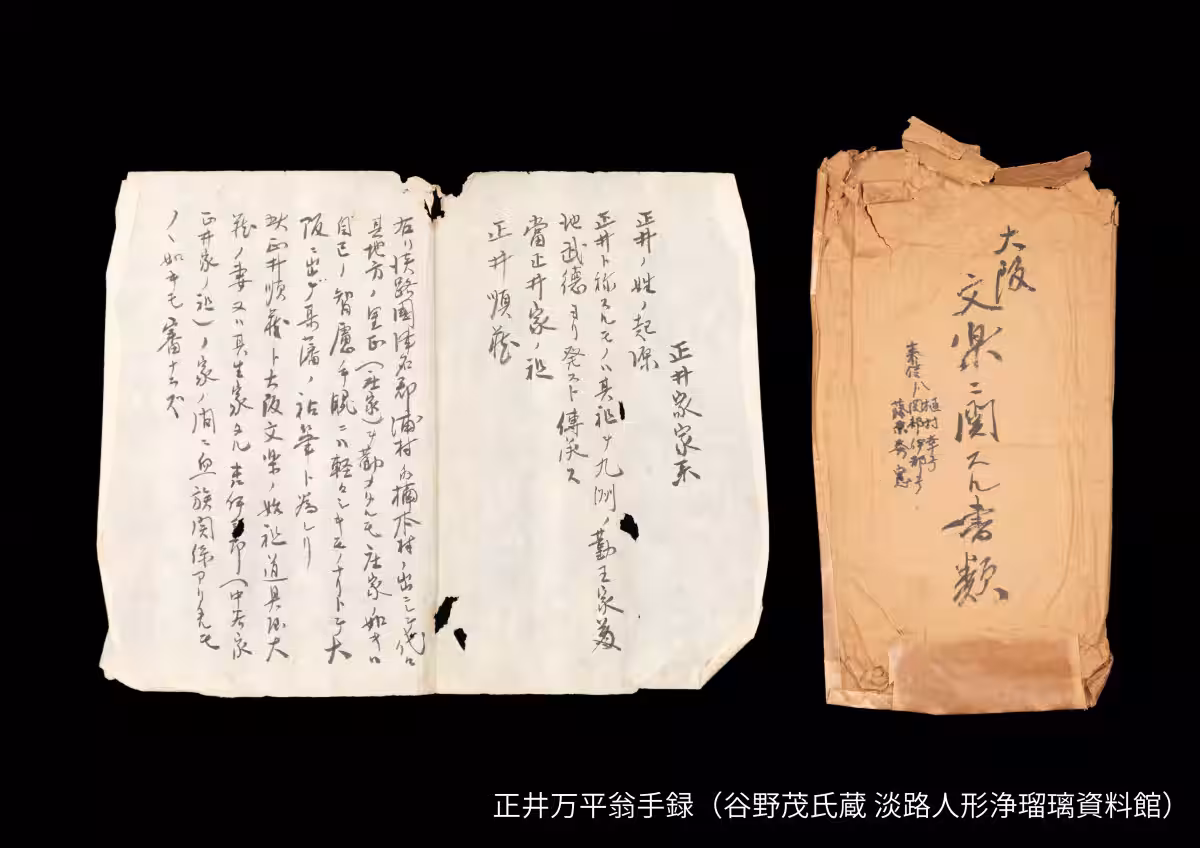 正井家家系
正井ノ姓ノ起源
正井ト称スルモノハ其祖ヲ九州ノ勤王家菊
地武徳ヨリ発スト傳フ
當正井家ノ祖
正井順蔵
右ハ淡路國津名郡浦村内楠本村ノ出ニシテ代々
其地方ノ里正(庄家)ヲ勤メタルモ庄家如キハ
自己ノ智慮手腕ニハ軽々シキモノナリトシ大
阪ニ出デ某藩ノ祐筆ト為レリ
此正井順蔵ト大阪文楽ノ始祖道具屋大
蔵ノ妻又ハ其生家タル
正井家ノ祖)ノ家ノ間ニ血族関係アリ
ノ如キモ審ナラズ
大阪
文楽ニ関スル書類
表装ハ
植村幸子
関部伊都子
藤原秀憲
正井万平翁手録（谷野茂氏蔵 淡路人形浄瑠璃資料館）